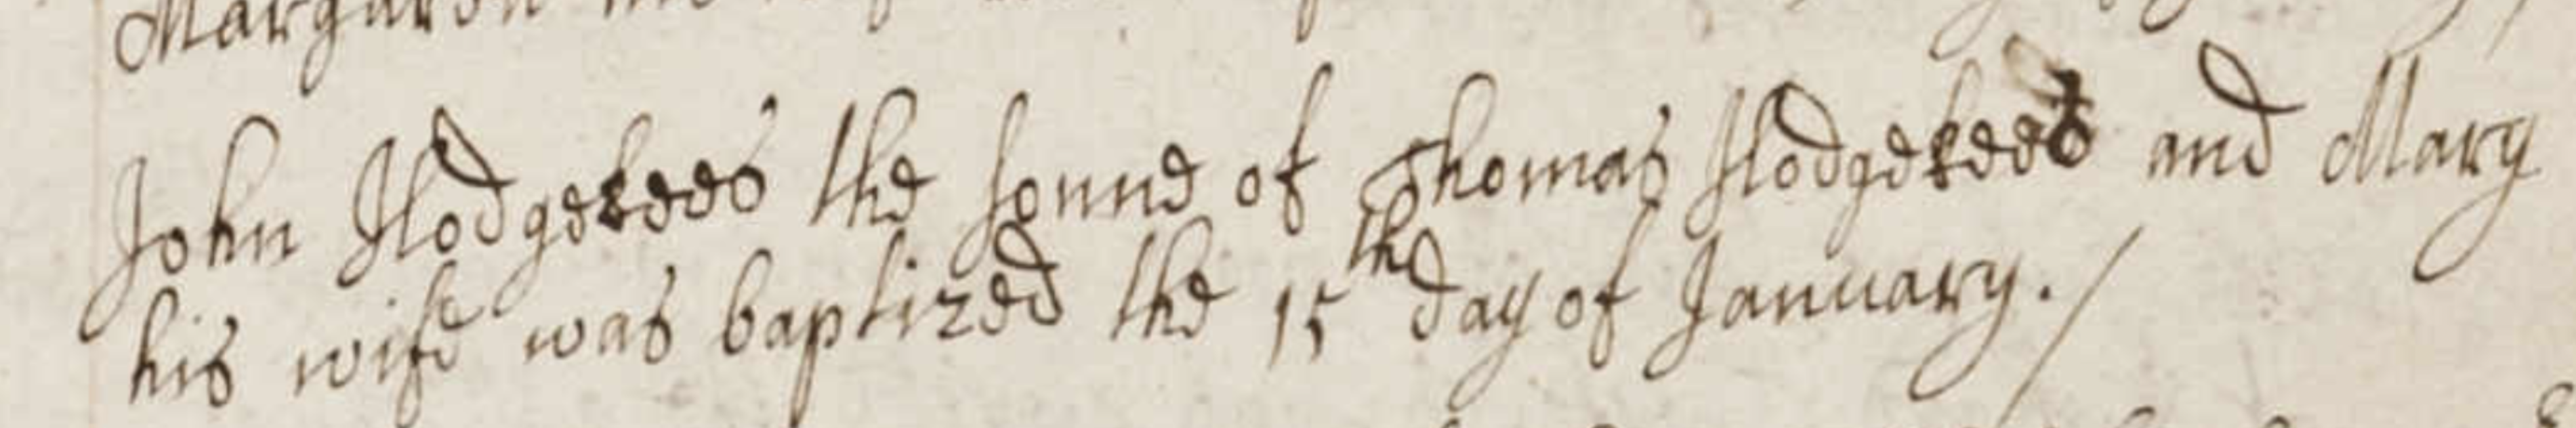 John Hodgekees the sonne of Thomas Hodgekees and Mary
his wife was baptized the 15th day of January./